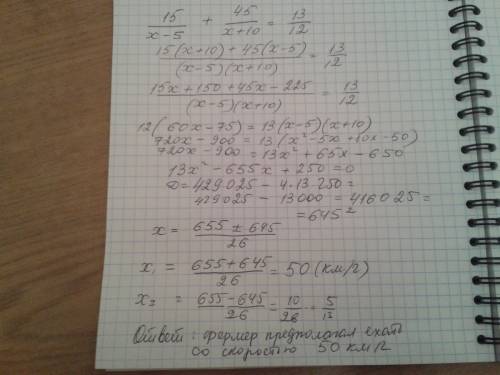 15/(x-5) + 45/(x+10) = 13/12
(15(x+10)+45(x-5))/((x-5)(x+10)) = 13/12
(15x+150+45x-225)/((x-5)(x+10)) = 13/12
12(60x-75)=13(x-5)(x+10)
720x-900=13(x²-5x+10x-50)
720x-900=13x²+65x-650
13x²-655x+250=0
D=429025-4·13·250=
429025-13000=416025=
=645²
x = (655±645)/26
x₁ = (655+645)/26 = 50 (км/г)
x₂ = (655-645)/26 = 10/26 = 5/13
Ответ: фермер предполагал ехать
со скоростью 50 км/г